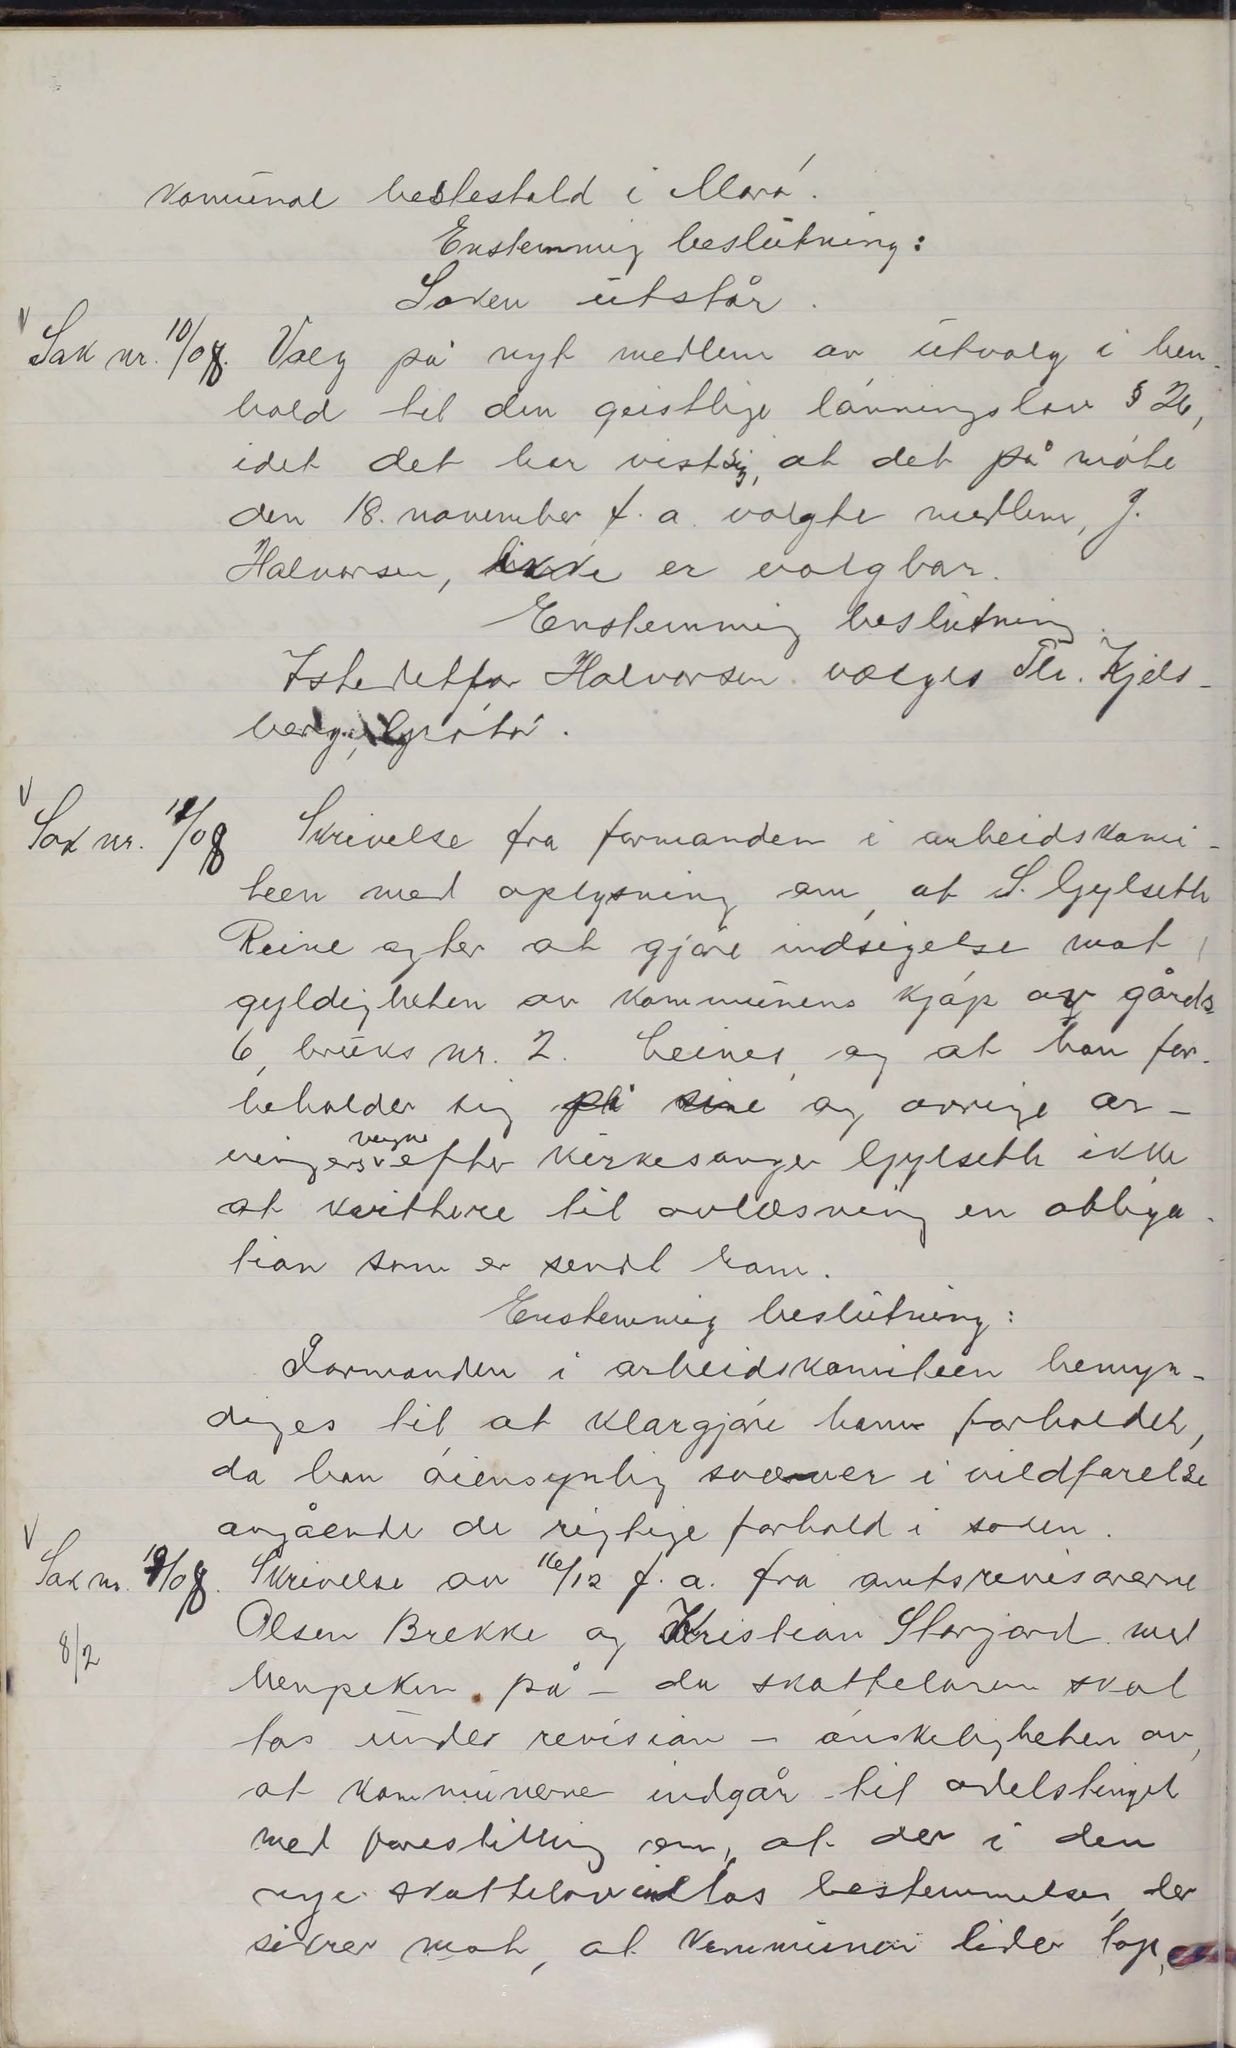 komunal hestestald i Morø.
Enstemmig beslutning:
Saken utstår.
Sak nr. 10/08. Valg på nyt medlem av utvalg i hen-
hold til den geistlige lønningslov § 26,
idet det har vist sig, at det på møte
den 18. november f. a. valgte medlem, J.
Halvorsen, ikke er valgbar.
Enstemmig beslutning.
Istedetfor Halvorsen vælges Th. Kjels-
berg, Grøtø.
Sak nr. 11/08 Skrivelse fra formanden i arbeidskomi-
teen med oplysning om, at S. Gylseth
Reine agter at gjøre indsigelse mot
gyldigheten av kommunens kjøp av gårds
6, bruks nr. 2. Leines, og at han for-
beholder sig på sine og øvrige ar-
vingers vegne efter kirkesanger Gylseth ikke
at kvittere til avlæsning en obliga-
tion som er sendt ham.
Enstemmig beslutning:
Formanden i arbeidskomiteen bemyn-
diges til at klargjøre ham forholdet,
da han øiensynlig svæver i vildfarelse
angående de rigtige forhold i saken.
Sak nr. 12/08. Skrivelse av 16/12 f. a. fra amtsrevisorerne
Olsen Brekke og Kristian Storjord med
8/2
henpeken på – da skatteloven skal
tas under revision – ønskeligheten av,
at kommunerne indgår til odelstinget
med forestilling om, at der i den
nye skattelov indtas bestemmelser, der
sikrer mot, at kommunen lider tap,